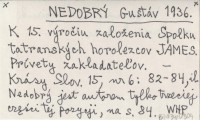 NEDOBRÝ Gustáv 1936.
K 15. výročiu založenia Spolku
tatranských horolezcov JAMES.
Prívety zakladateľov. —
Krásy Slov. 15, nr 6: 82-84, il
Nedobrý jest autorem tylko trzeciej
części tej pozycji, na s. 84. WHP